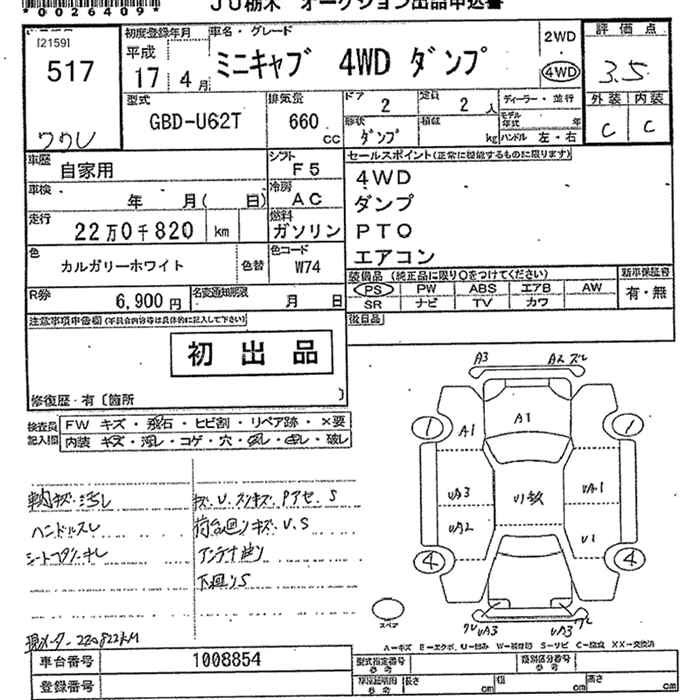 *0026409*
JU栃木 オークション出品申込書
[2159]
517
ワケU
初度登録年月
平成
17 4 月
車名・グレード
ミニキャブ 4WD ダンプ
2WD
4WD
評価点
3.5
外装 内装
C C
型式
GBD-U62T
排気量
660
cc
ドア
2
定員
2 人
形状
ダンプ
積載
kg
ディーラー・並行
モデル年式
年
ハンドル 左・右
車歴
自家用
シフト
F5
車検
年 月( 日)
冷房
AC
走行
22万0千820 km
燃料
ガソリン
色
カルガリーホワイト
色替
色コード
W74
R券
6,900 円
名変通知期限
月 日
セールスポイント(正常に機能するものに限ります)
4WD
ダンプ
PTO
エアコン
装備品 (純正品に限り○をつけてください)
PS PW ABS エアB AW
SR ナビ TV カワ
新車保証書
有・無
後日品
注意事項申告欄(不具合内容等は具体的に記入して下さい)
初出品
修復歴・有〔箇所 〕
検査員記入欄
FW キズ・飛石・ヒビ割・リペア跡・×要
内装 キズ・汚レ・コゲ・穴・
破レ
車内キズ汚レ
ハンドルスレ
キズ、U、
S
荷台廻りキズ、U、S
アンテナ曲り
下廻りS
現メーター 220822KM
A3
A2 ズレ
1
A1
A1
1
UA3
UA1
UA2
U1
4
4
UA3
UA3
スペア
A−キズ E−エクボ U−凹み W−補修跡 S−サビ C−腐食 XX−交換済
車台番号
1008854
登録番号
型式指定番号
参考
類別区分番号
参考
参考
長さ
cm
幅
cm
高さ
cm